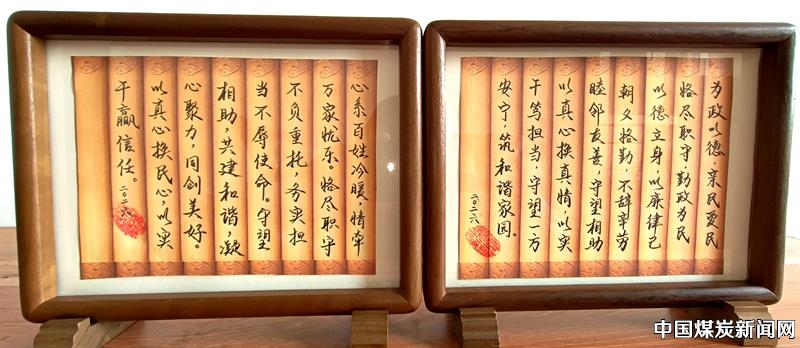 心系百姓冷暖，情牵
万家忧乐。恪尽职守
不负重托，务实担
当不辱使命。守望
相助，共建和谐，凝
心聚力，同创美好。
以真心换民心，以实
干赢信任。二〇二六
为政以德，亲民爱民
恪尽职守勤政为民
以德立身以廉律己
朝夕恪勤，不辞辛劳
睦邻友善，守望相助
以真心换真情，以实
干笃担当，守望一方
安宁，筑和谐家园。
二〇二六
中国煤炭新闻网